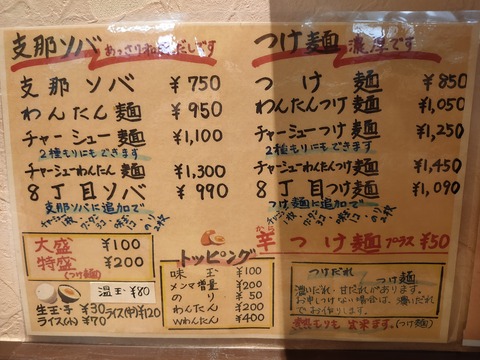 支那ソバ あっさり和風だしです
支那ソバ ¥750
わんたん麺 ¥950
チャーシュー麺 ¥1,100
2種もりにもできます
チャーシューわんたん麺 ¥1,300
8丁目ソバ ¥990
支那ソバに追加で
大盛 ¥100
特盛 ¥200
(つけ麺)
温玉 ¥80
生玉子 ¥30 ライス(中)¥120
ライス(小) ¥70
つけ麺 濃厚です
つけ麺 ¥850
わんたんつけ麺 ¥1,050
チャーシューつけ麺 ¥1,250
2種もりにもできます
チャーシューわんたんつけ麺 ¥1,450
8丁目つけ麺 ¥1,090
つけ麺に追加で
辛つけ麺 プラス ¥50
トッピング
味玉 ¥100
メンマ増量 ¥200
のり ¥50
わんたん ¥200
Wわんたん ¥400
つけだれ
つけ麺
濃いだれ・甘だれがあります。
お申しつけない場合は、濃いだれ
でお作りします。
もりも出来ます。(つけ麺)